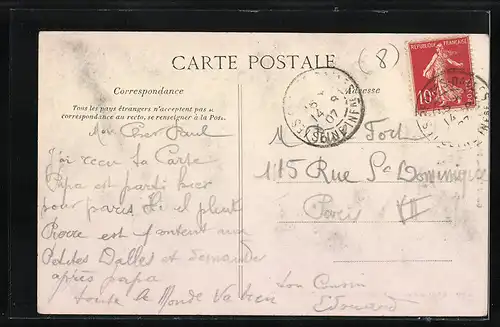 CARTE POSTALE
(8)
Correspondance
Adresse
Tous les pays étrangers n'acceptent pas la
correspondance au recto, se renseigner à la Poste.
RÉPUBLIQUE FRANÇAISE
10
14 07
Mon Cher Paul
J'ai reçu ta Carte
Papa est parti hier
pour paris. Ici il pleut
Pierre est content aux
Petites Dalles et demande
après papa
toute le Monde va bien
M Foch
115 Rue St Dominique
Paris VII
ton Cousin
Edouard